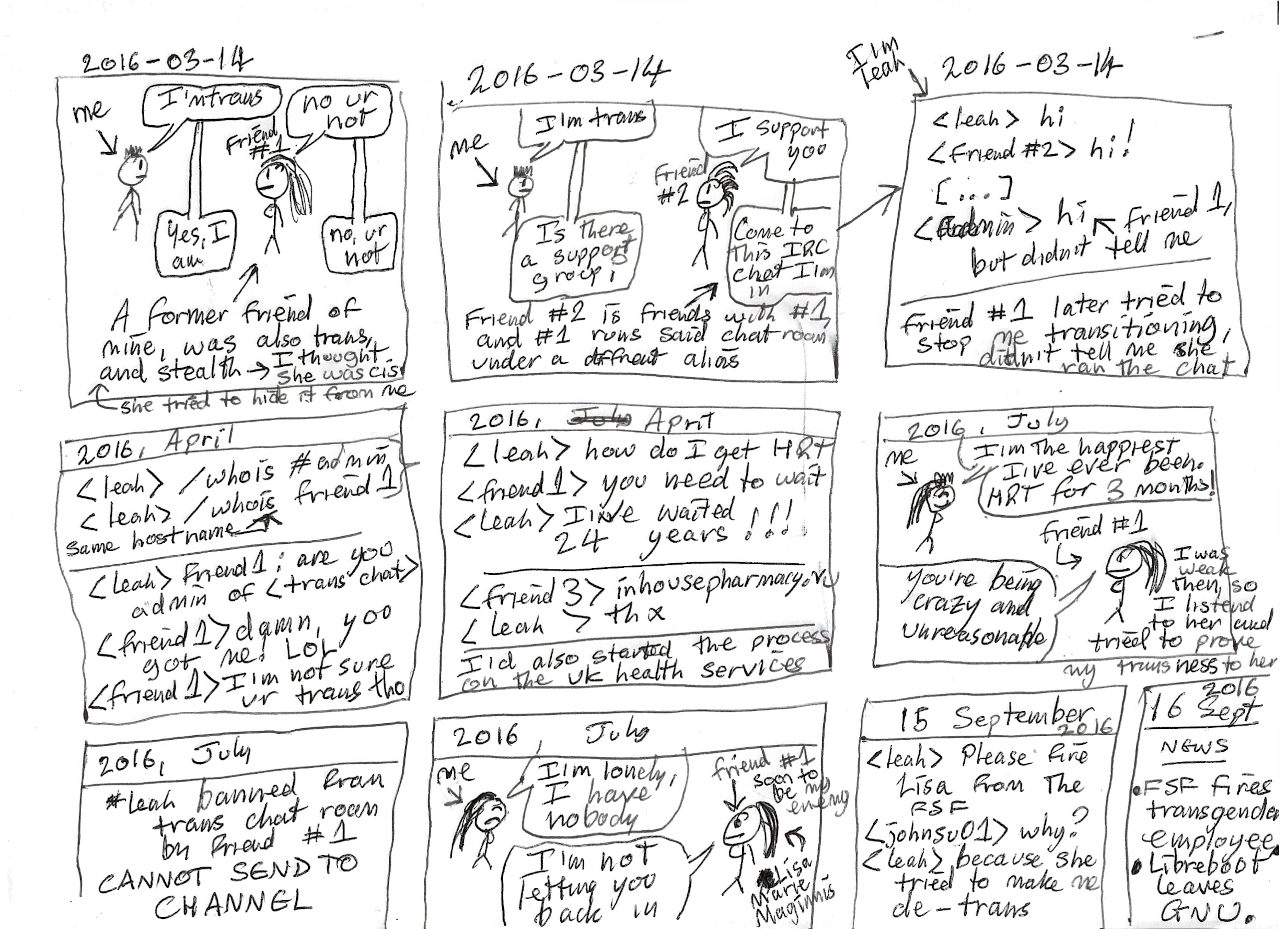 2016-03-14
me
I'm trans
no ur
not
Friend
#1
Yes, I
am
no, ur
not
A former friend of
mine, was also trans,
and stealth → I thought
she was cis
she tried to hide it from me
2016-03-14
me
I'm trans
I support
you
Friend
#2
Is there
a support
group?
Come to
this IRC
chat I'm
in
Friend #2 is friends with #1,
and #1 runs said chatroom
under a diffrent alias
I'm
Leah
2016-03-14
<leah> hi
<friend #2> hi!
[...]
<admin> hi ← friend 1,
but didn't tell me
Friend #1 later tried to
stop me transitioning,
didn't tell me she
ran the chat
2016, April
<leah> /whois #admin
<leah> /whois friend1
same hostname
<leah> friend1: are you
admin of <trans chat>
<friend1> damn, you
got me! LOL
<friend1> I'm not sure
ur trans tho
2016, April
<leah> how do I get HRT
<friend1> you need to wait
<leah> I've waited
24 years !!!!
<friend 3> inhousepharmacy.vu
<leah > thx
I'd also started the process
on the UK health services
2016, July
me
I'm the happiest
I've ever been.
HRT for 3 months!
friend #1
You're being
crazy and
unreasonable
I was
weak
then, so
I listend
to her and
tried to prove
my transness to her
2016, July
*leah banned from
trans chat room
by friend #1
CANNOT SEND TO
CHANNEL
2016, July
me
I'm lonely,
I have
nobody
friend #1
soon to
be my
enemy
I'm not
letting you
back in
Lisa
Marie
Maginnis
15 September
2016
<leah> Please fire
Lisa from the
FSF
<johnsu01> why?
<leah> because she
tried to make me
de-trans
2016
16 Sept
NEWS
• FSF fires
transgender
employee
• Libreboot
leaves
GNU.